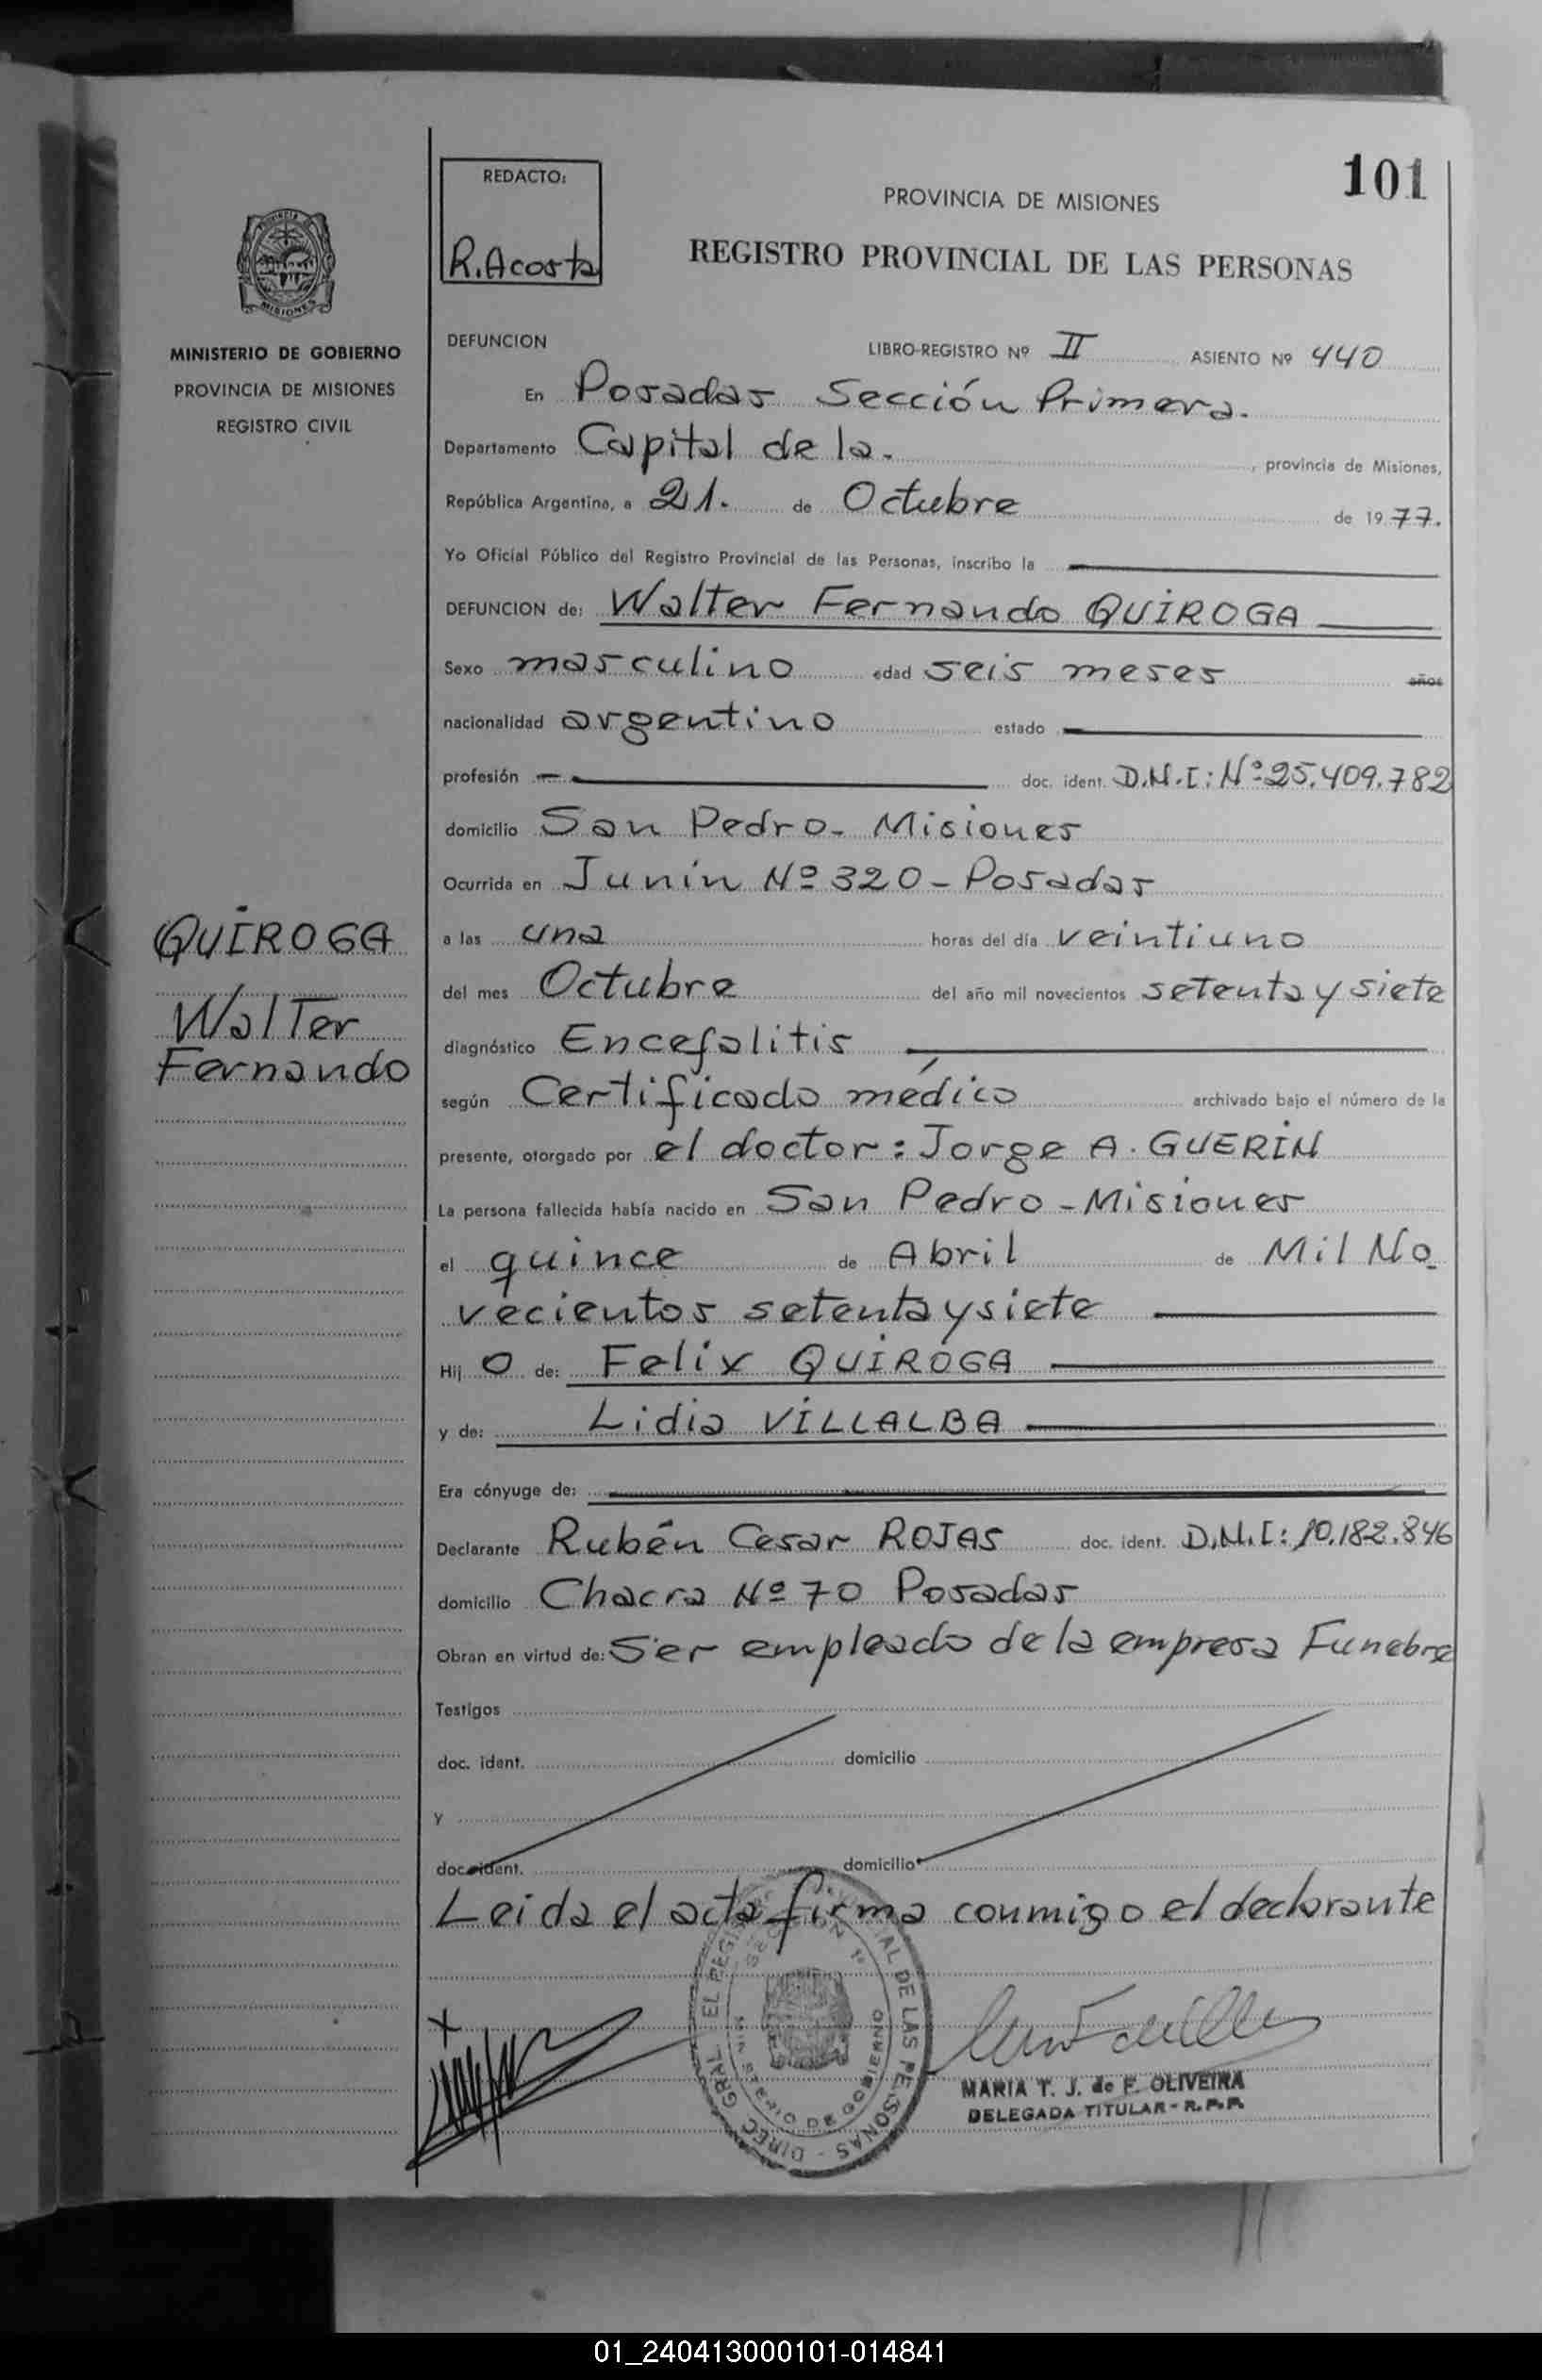 101
REDACTO:
R. Acosta
PROVINCIA DE MISIONES
REGISTRO PROVINCIAL DE LAS PERSONAS
MISIONES
MINISTERIO DE GOBIERNO
PROVINCIA DE MISIONES
REGISTRO CIVIL
DEFUNCION LIBRO-REGISTRO Nº II ASIENTO Nº 440
En Posadas Sección Primera.
Departamento Capital de la. , provincia de Misiones,
República Argentina, a 21. de Octubre de 1977.
Yo Oficial Público del Registro Provincial de las Personas, inscribo la
DEFUNCION de: Walter Fernando QUIROGA
Sexo masculino edad seis meses años
nacionalidad argentino estado
profesión — doc. ident. D.N.I: Nº 25.409.782
domicilio San Pedro - Misiones
Ocurrida en Junín Nº 320 - Posadas
a las una horas del día veintiuno
del mes Octubre del año mil novecientos setenta y siete
diagnóstico Encefalitis
según Certificado médico archivado bajo el número de la
presente, otorgado por el doctor: Jorge A. GUERIN
La persona fallecida había nacido en San Pedro - Misiones
el quince de Abril de Mil No_
vecientos setenta y siete
Hij o de: Felix QUIROGA
y de: Lidia VILLALBA
Era cónyuge de:
Declarante Rubén Cesar ROJAS doc. ident. D.N.I: 10.182.846
domicilio Chacra Nº 70 Posadas
Obran en virtud de: Ser empleado de la empresa Funebre
Testigos
doc. ident. domicilio
y
doc. ident. domicilio
Leida el acta firma conmigo el declarante
QUIROGA
Walter
Fernando
DIREC. GRAL. EL REGISTRO PROVINCIAL DE LAS PERSONAS
MINISTERIO DE GOBIERNO
MARIA T. J. de F. OLIVEIRA
DELEGADA TITULAR - R.P.P.
01_240413000101-014841